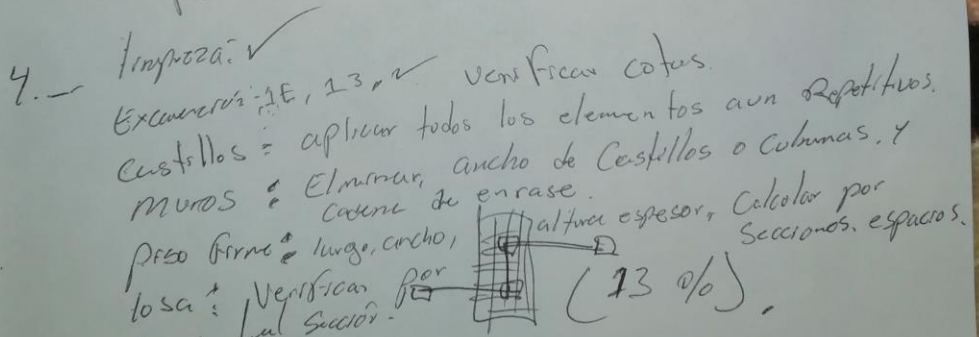 4.- limpieza: ✓
Excavación: 1E, 13, ✓ verificar cotas.
Castillos = aplicar todos los elementos aun Repetitivos.
muros : Eliminar, ancho de Castillos o Columnas, y
Cadena de enrase.
piso firme : largo, ancho, altura espesor, Calcular por
Secciones. espacios.
losa : Verificar por (13 %).
Sección.